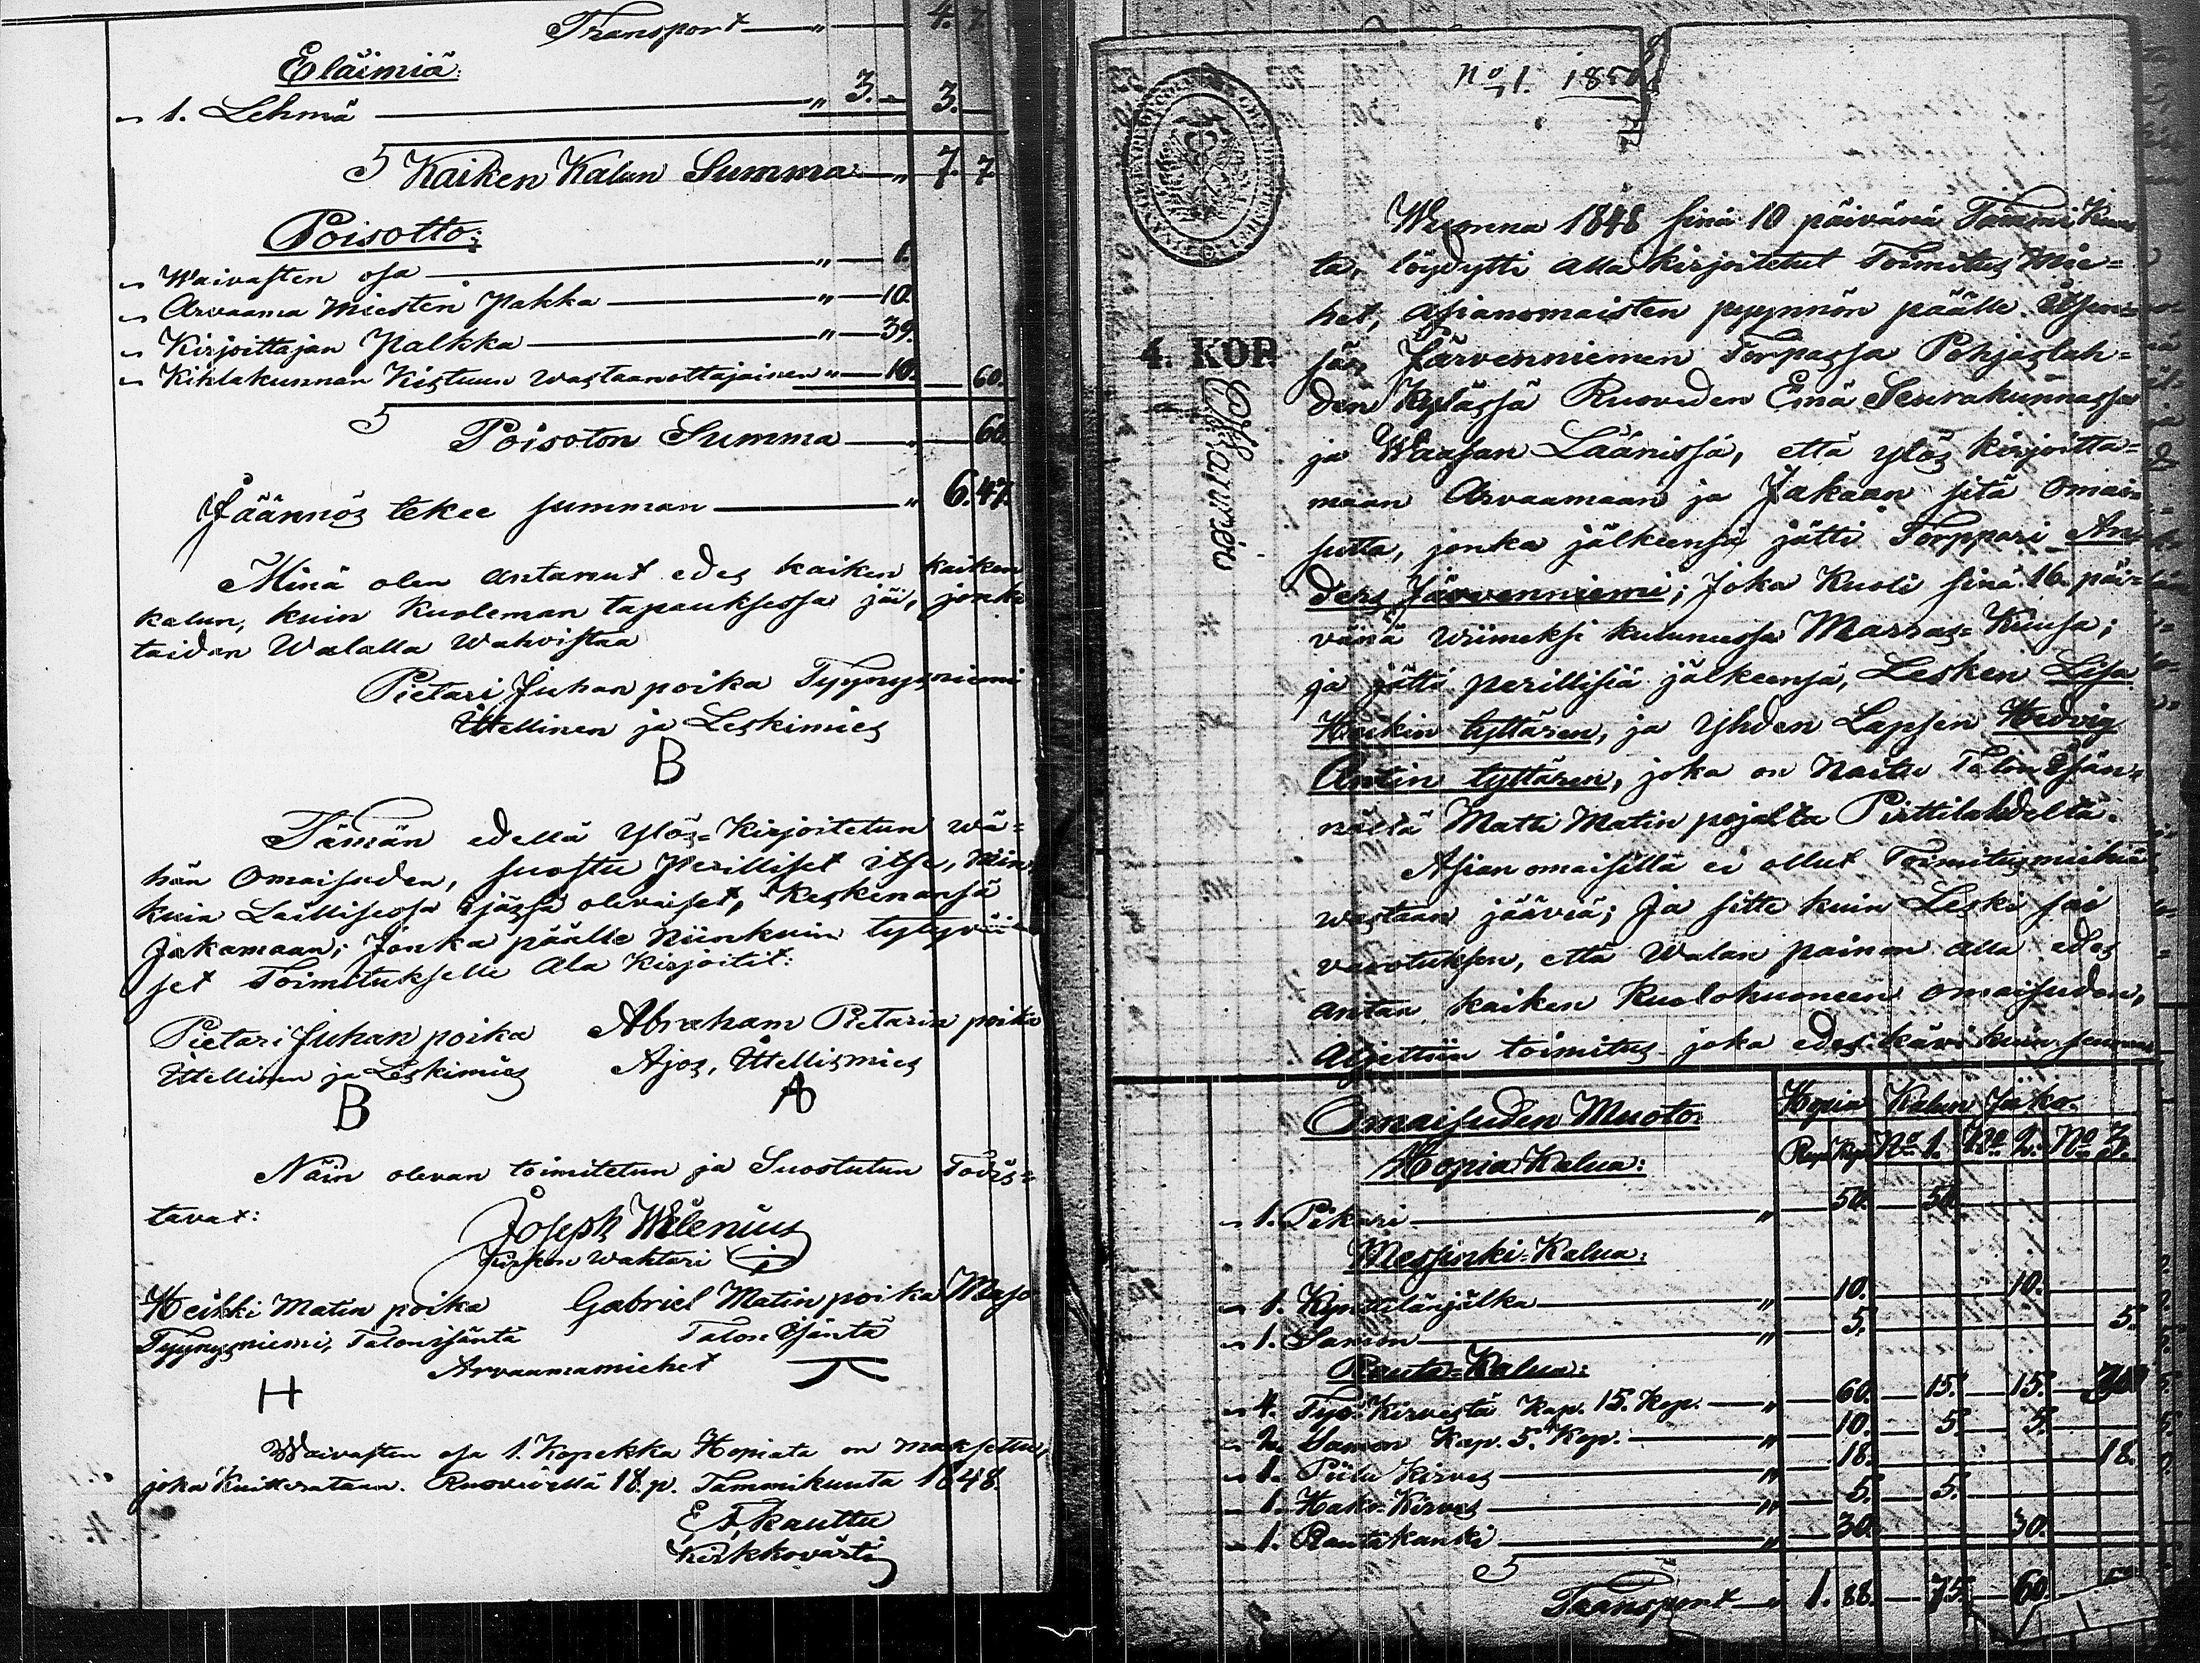 Transport — " — 4. 7.
Eläimiä:
" 1. Lehmä — " 3. — 3. —
S Kaiken Kalun Summa — " 7. 7.
Poisotto:
" Waivasten osa — " — 1.
" Arvaama Miesten Palkka — " — 10.
" Kirjoittajan Palkka — " — 39.
" Kihlakunnan Kistuun wastaanottajainen " — 10. — 60.
S Poisoton Summa — " — 60.
Jäännös tekee summan — " 6. 47.
Minä olen antanut edes kaiken kaiken
kalun, kuin Kuoleman tapauksessa jäi, jonka
taidan Walalla Wahvistaa
Pietari Juhan poika Tyynysniemi
Ittellinen ja Leskimies
B
Tämän edellä ylös-Kirjoitetun wä-
hän Omaisuden, suostu Perilliset itse, niin
kuin Laillisessa ijässä olevaiset, Keskenänsä
Jakamaan; Jonka päälle Niinkuin tytyväi-
set Toimitukselle Ala Kirjoitit:
Pietari Juhan poika Abraham Pietarin poika
Ittellinen ja Leskimies Ajos, Ittellismies
B A
Näin olevan toimitetun ja Suostutun Todis-
tavat:
Joseph Wilenius
Kirkon Wahtari
Heikki Matin poika Gabriel Matin poika Maso
Tyynysniemi, Talonisäntä Talon Isäntä
Arvaamamiehet
H
Waivasten osa 1. Kopekka Hopiata on maksettu,
joka Kuitterataan. Ruovedellä 18. p. Tammikuuta 1848.
Kauttu
Kirkkovärti
No 1. 185
4. KOP.
Wuonna 1848 sinä 10 päivänä TammiKuu
ta, löydytti alla kirjoitetut Toimitus Mie-
het, Asianomaisten pyynnön päälle Itsen-
sä, Järvenniemen Torpassa Pohjaslah-
den Kylässä Ruoveden Emä Seurakunnassa
ja Waasan Läänissä, että ylös kirjoitta-
maan Arvaamaan ja Jakaan sitä Omai-
sutta, jonka jälkeensä jätti Torppari An-
ders Järvenniemi; Joka Kuoli sinä 16. päi-
vänä wiimeksi kulunussa Marras-Kuusa;
ja jätti perillisiä jälkeensä, Lesken Lisa
Heikin tyttären, ja yhden Lapsen Hedvig
Antin tyttären, joka on Naitu Talon Isän-
nällä Matti Matin pojalta Pirttilahdelta.
Asian omaisilla ei ollut Toimitusmiehiä
wastaan jääviä; Ja sitte kuin Leski sai
varotuksen, että Walan painon alla edes
antaa kaiken Kuolohuoneen omaisuden,
Aljettiin toimitus joka edes käwi kuin seuraa
Omaisuden Muoto: Hopia Kalun Jako.
Hopia Kalua: Rupl. Kop. No 1. No 2. No 3.
" 1. Pikari — " — 50. — 50.
Messinki-Kalua:
" 1. Kynttilänjalka — " — 10. — 10.
" 1. Samon — " — 5. — 5.
Rauta-Kalua:
" 4. Työ-Kirvestä Kap. 15. Kop. — " — 60. — 15. — 15. — 30.
" 2. Samon Kap. 5. Kop. — " — 10. — 5. — 5.
" 1. Piilu Kirves — " — 18. — 18.
" 1. Hako-Kirves — " — 5. — 5.
" 1. Rautakanki — " — 30. — 30.
S
Transport — " 1. 88. — 75. — 60.